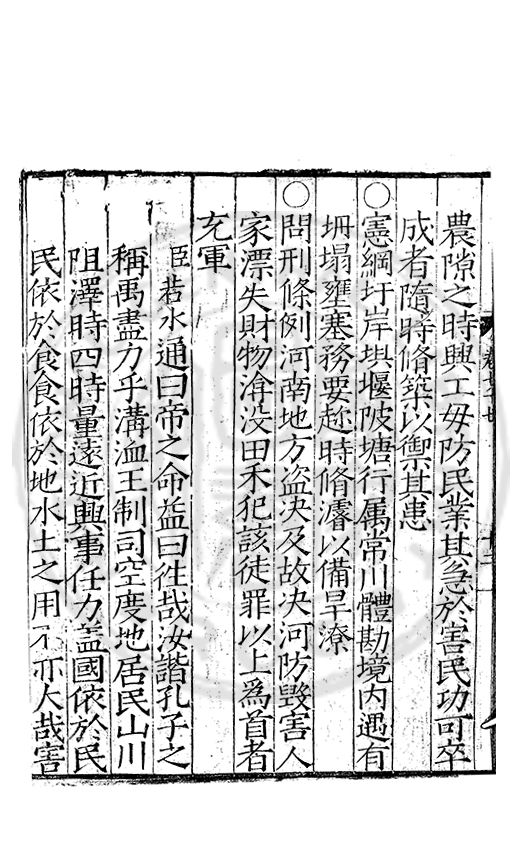 農隙之時興工毋防民業其急於害民功可卒
成者隨時脩築以禦其患
○憲綱圩岸埧堰陂塘行属常川體勘境内遇有
坍塌壅塞務要趂時脩濬以備旱潦
○問刑條例河南地方盗决及故决河防毁害人
家漂失財物渰没田禾犯該徒罪以上爲首者
充軍
臣若水通曰帝之命益曰徃哉汝諧孔子之
稱禹盡力乎溝洫王制司空度地居民山川
阻澤時四時量逺近興事任力盖國依於民
民依於食食依於地水土之用不亦大哉害